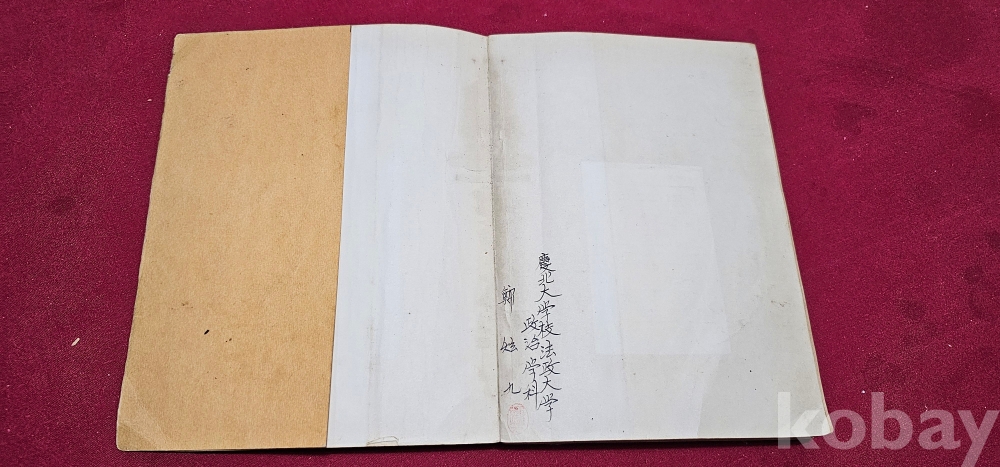 慶北大学校法政大学
政治学科
鄭 炫 九
kobay